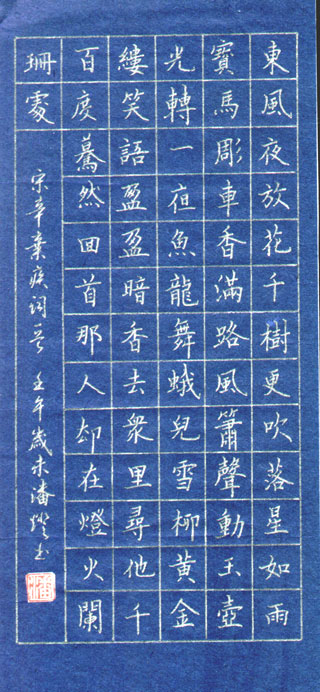 東風夜放花千樹更吹落星如雨
寶馬彫車香滿路風簫聲動玉壺
光轉一夜魚龍舞蛾兒雪柳黃金
縷笑語盈盈暗香去衆里尋他千
百度驀然回首那人却在燈火闌
珊處
宋辛棄疾詞一首 壬午歲末潘书